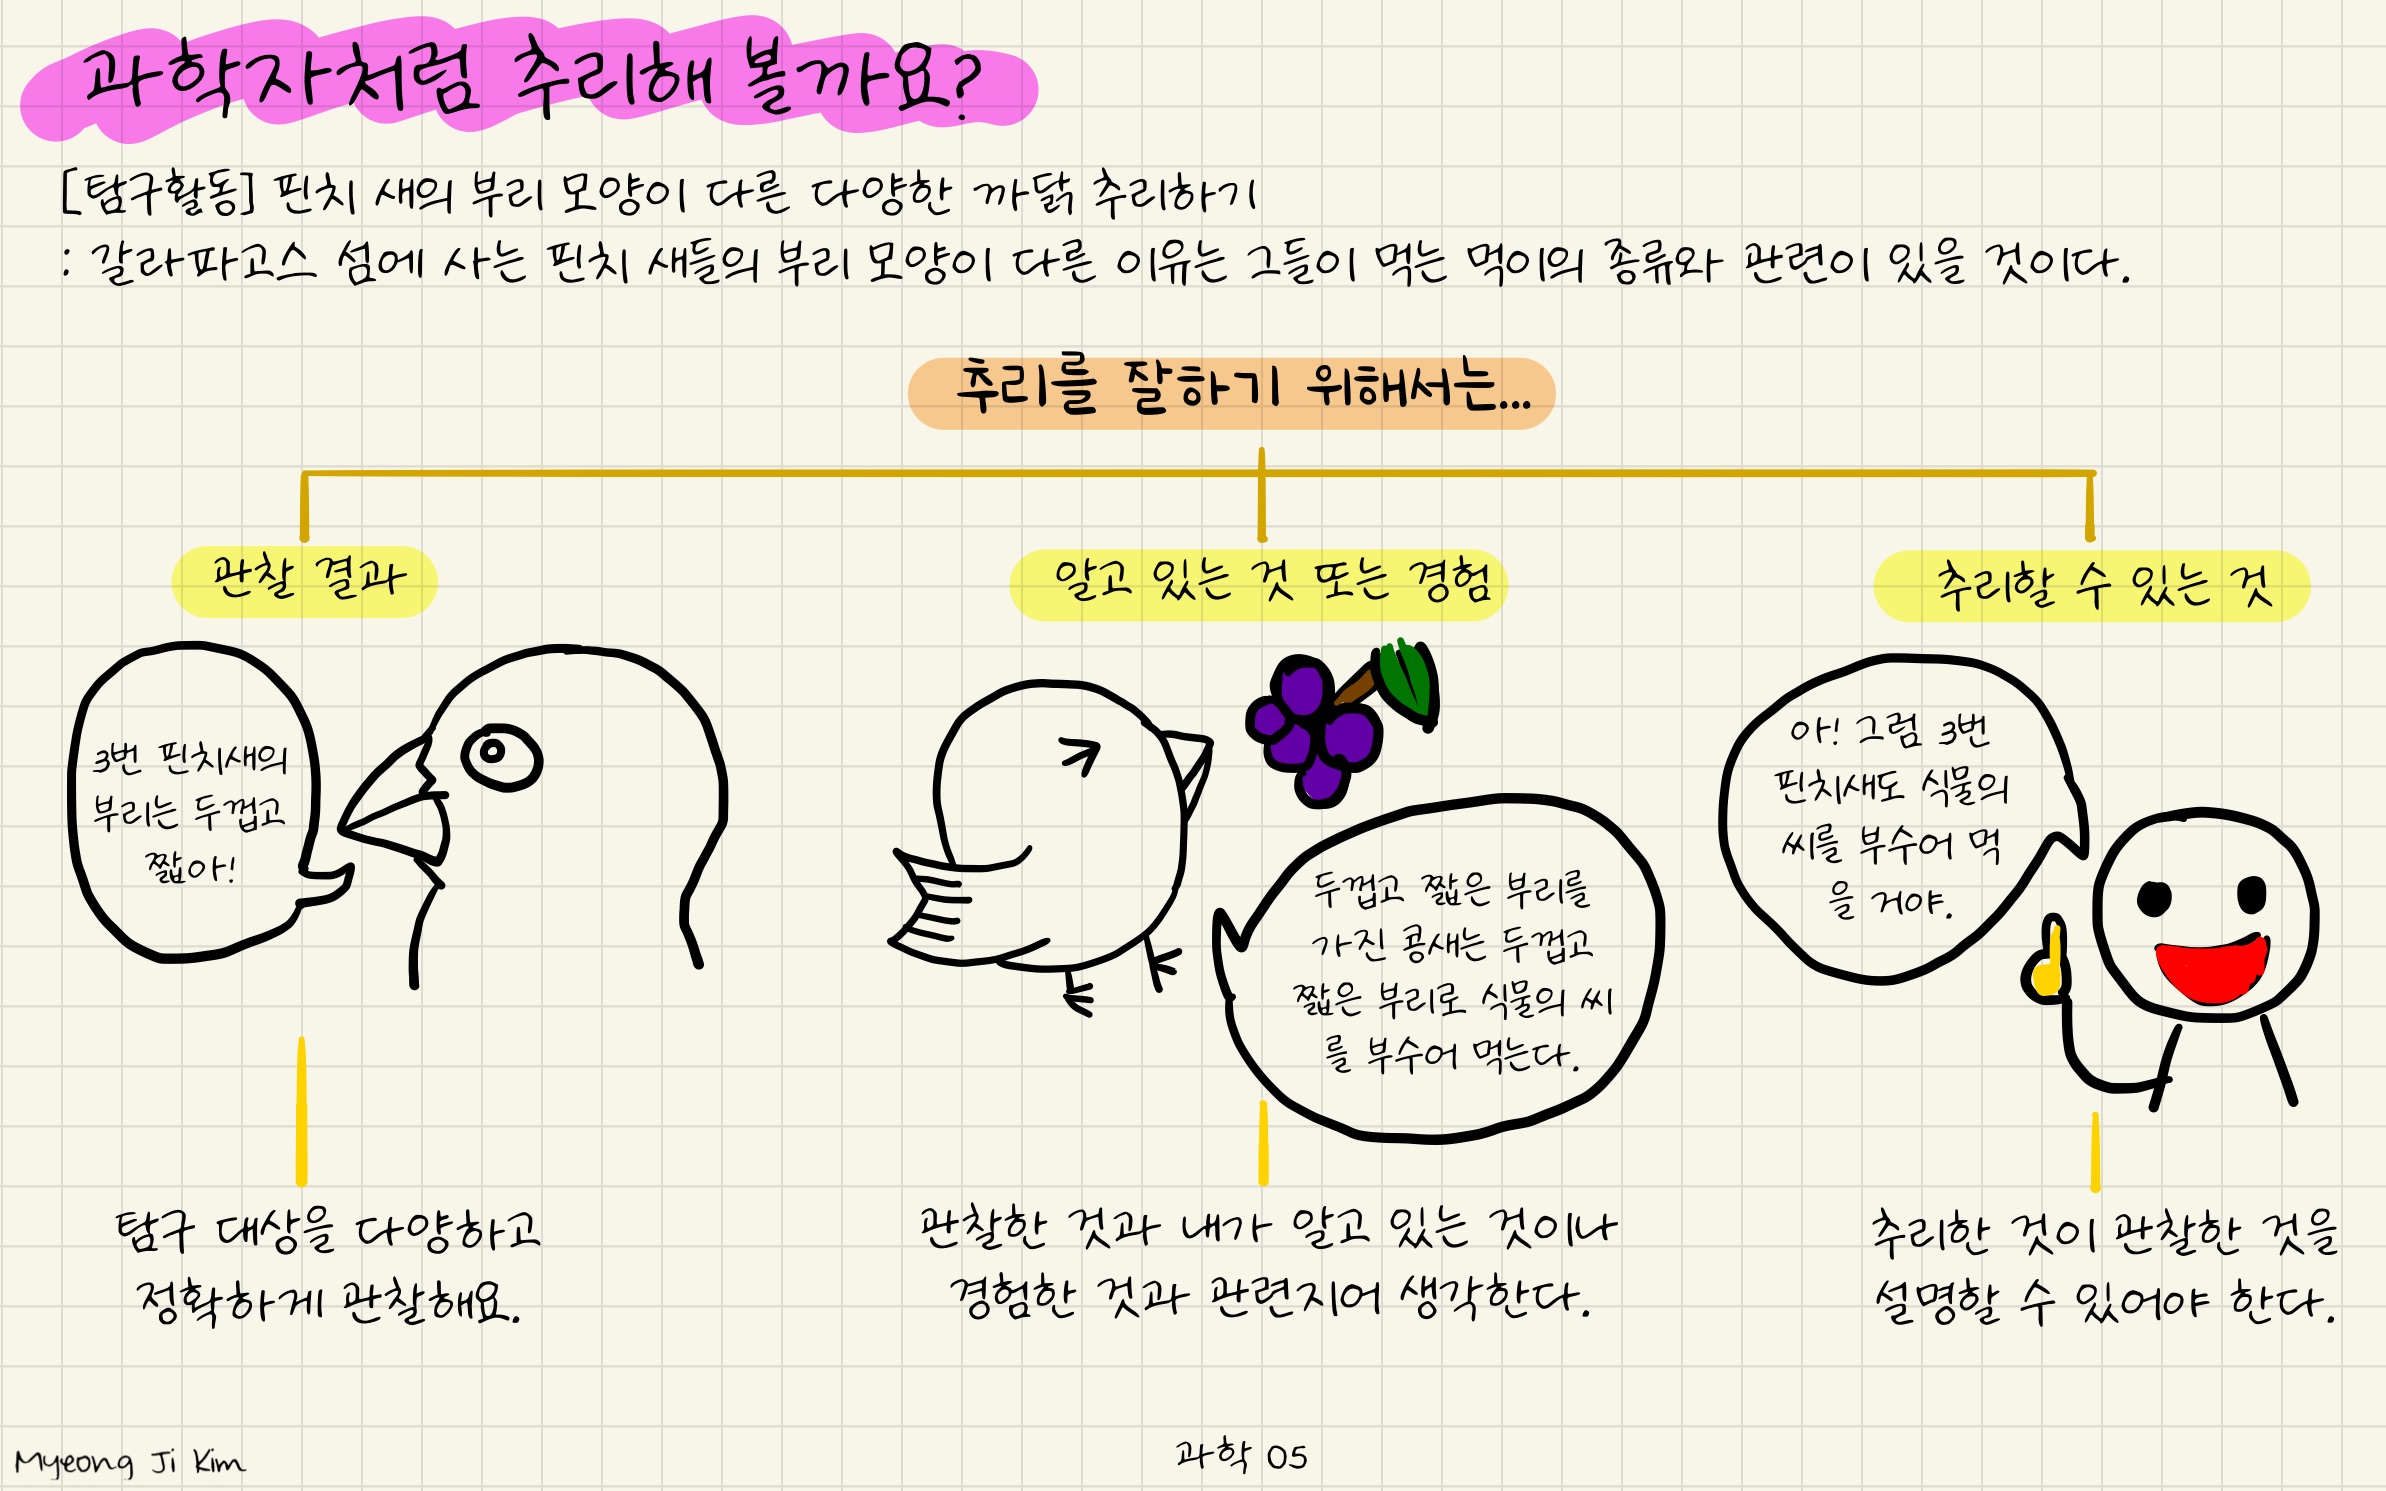 과학자처럼 추리해 볼까요?
[탐구활동] 핀치 새의 부리 모양이 다른 다양한 까닭 추리하기
: 갈라파고스 섬에 사는 핀치 새들의 부리 모양이 다른 이유는 그들이 먹는 먹이의 종류와 관련이 있을 것이다.
추리를 잘하기 위해서는...
관찰 결과
3번 핀치새의
부리는 두껍고
짧아!
탐구 대상을 다양하고
정확하게 관찰해요.
알고 있는 것 또는 경험
두껍고 짧은 부리를
가진 콩새는 두껍고
짧은 부리로 식물의 씨
를 부수어 먹는다.
관찰한 것과 내가 알고 있는 것이나
경험한 것과 관련지어 생각한다.
추리할 수 있는 것
아! 그럼 3번
핀치새도 식물의
씨를 부수어 먹
을 거야.
추리한 것이 관찰한 것을
설명할 수 있어야 한다.
Myeong Ji Kim
과학 05